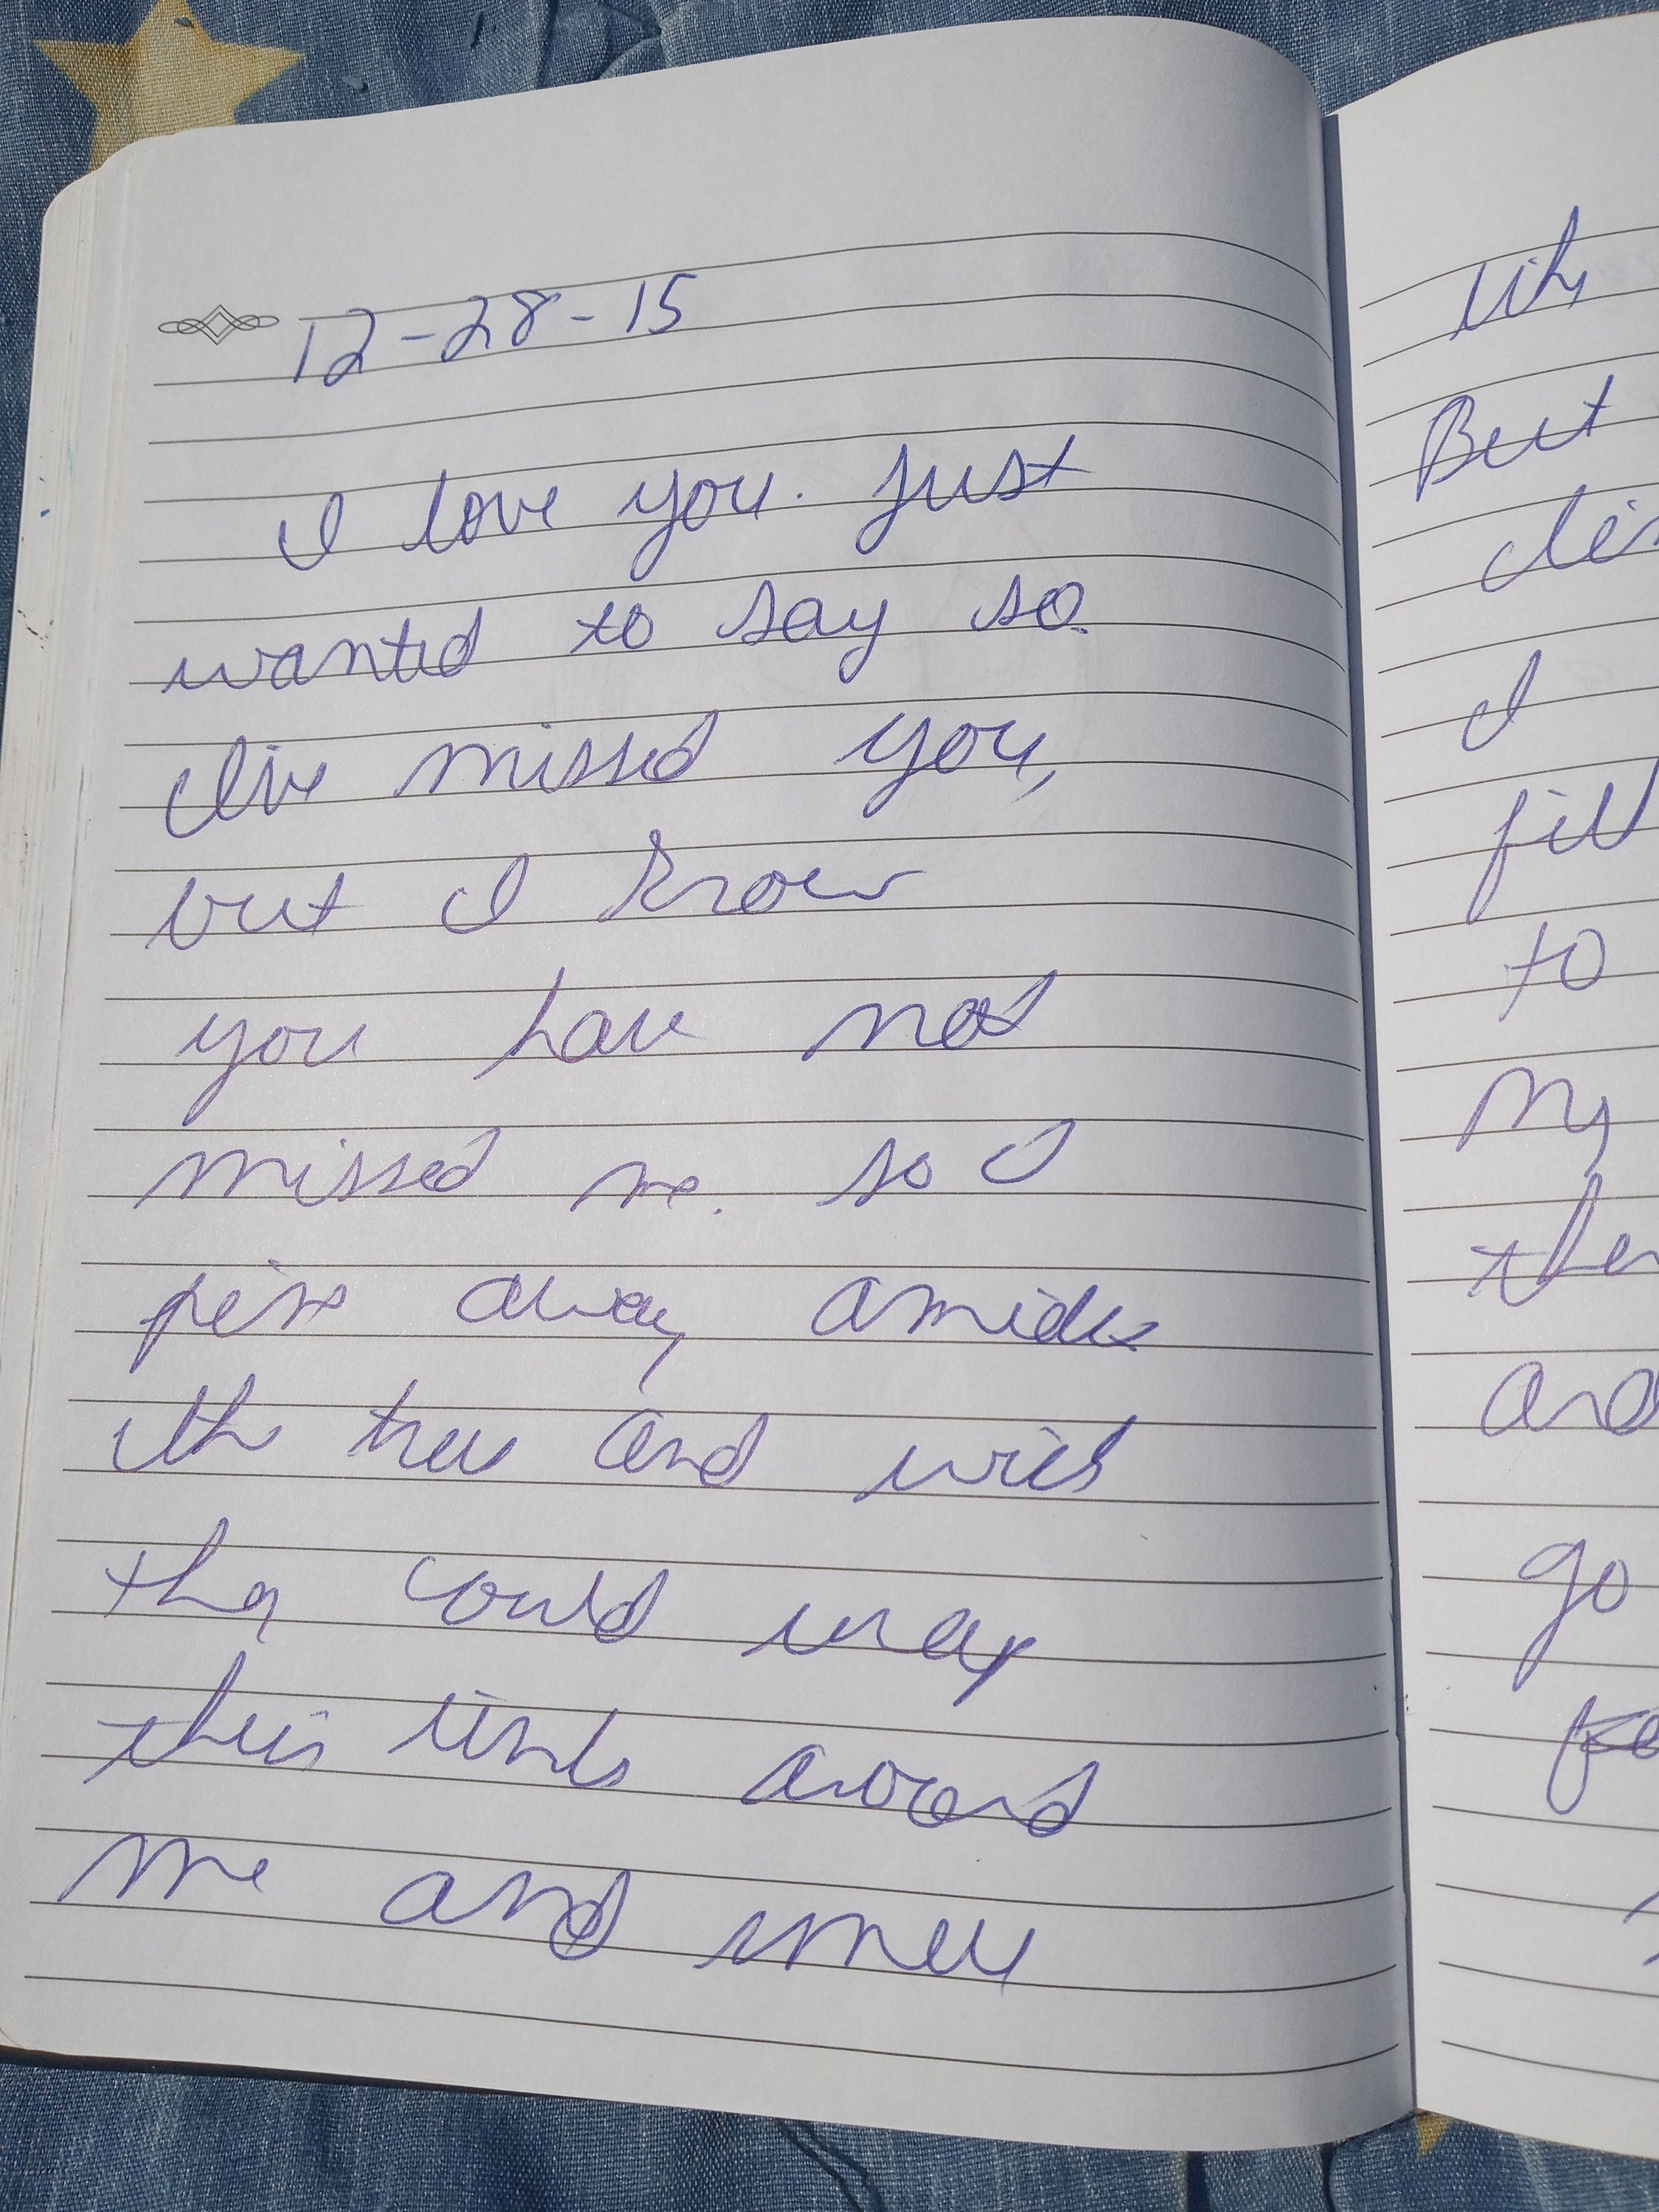 12-28-15
I love you. Just
wanted to say so.
I've missed you,
but I know
you have not
missed me. so I
pine away amidst
the trees and wish
they could wrap
their limbs around
me and
But
I
fill
to
my
and
go